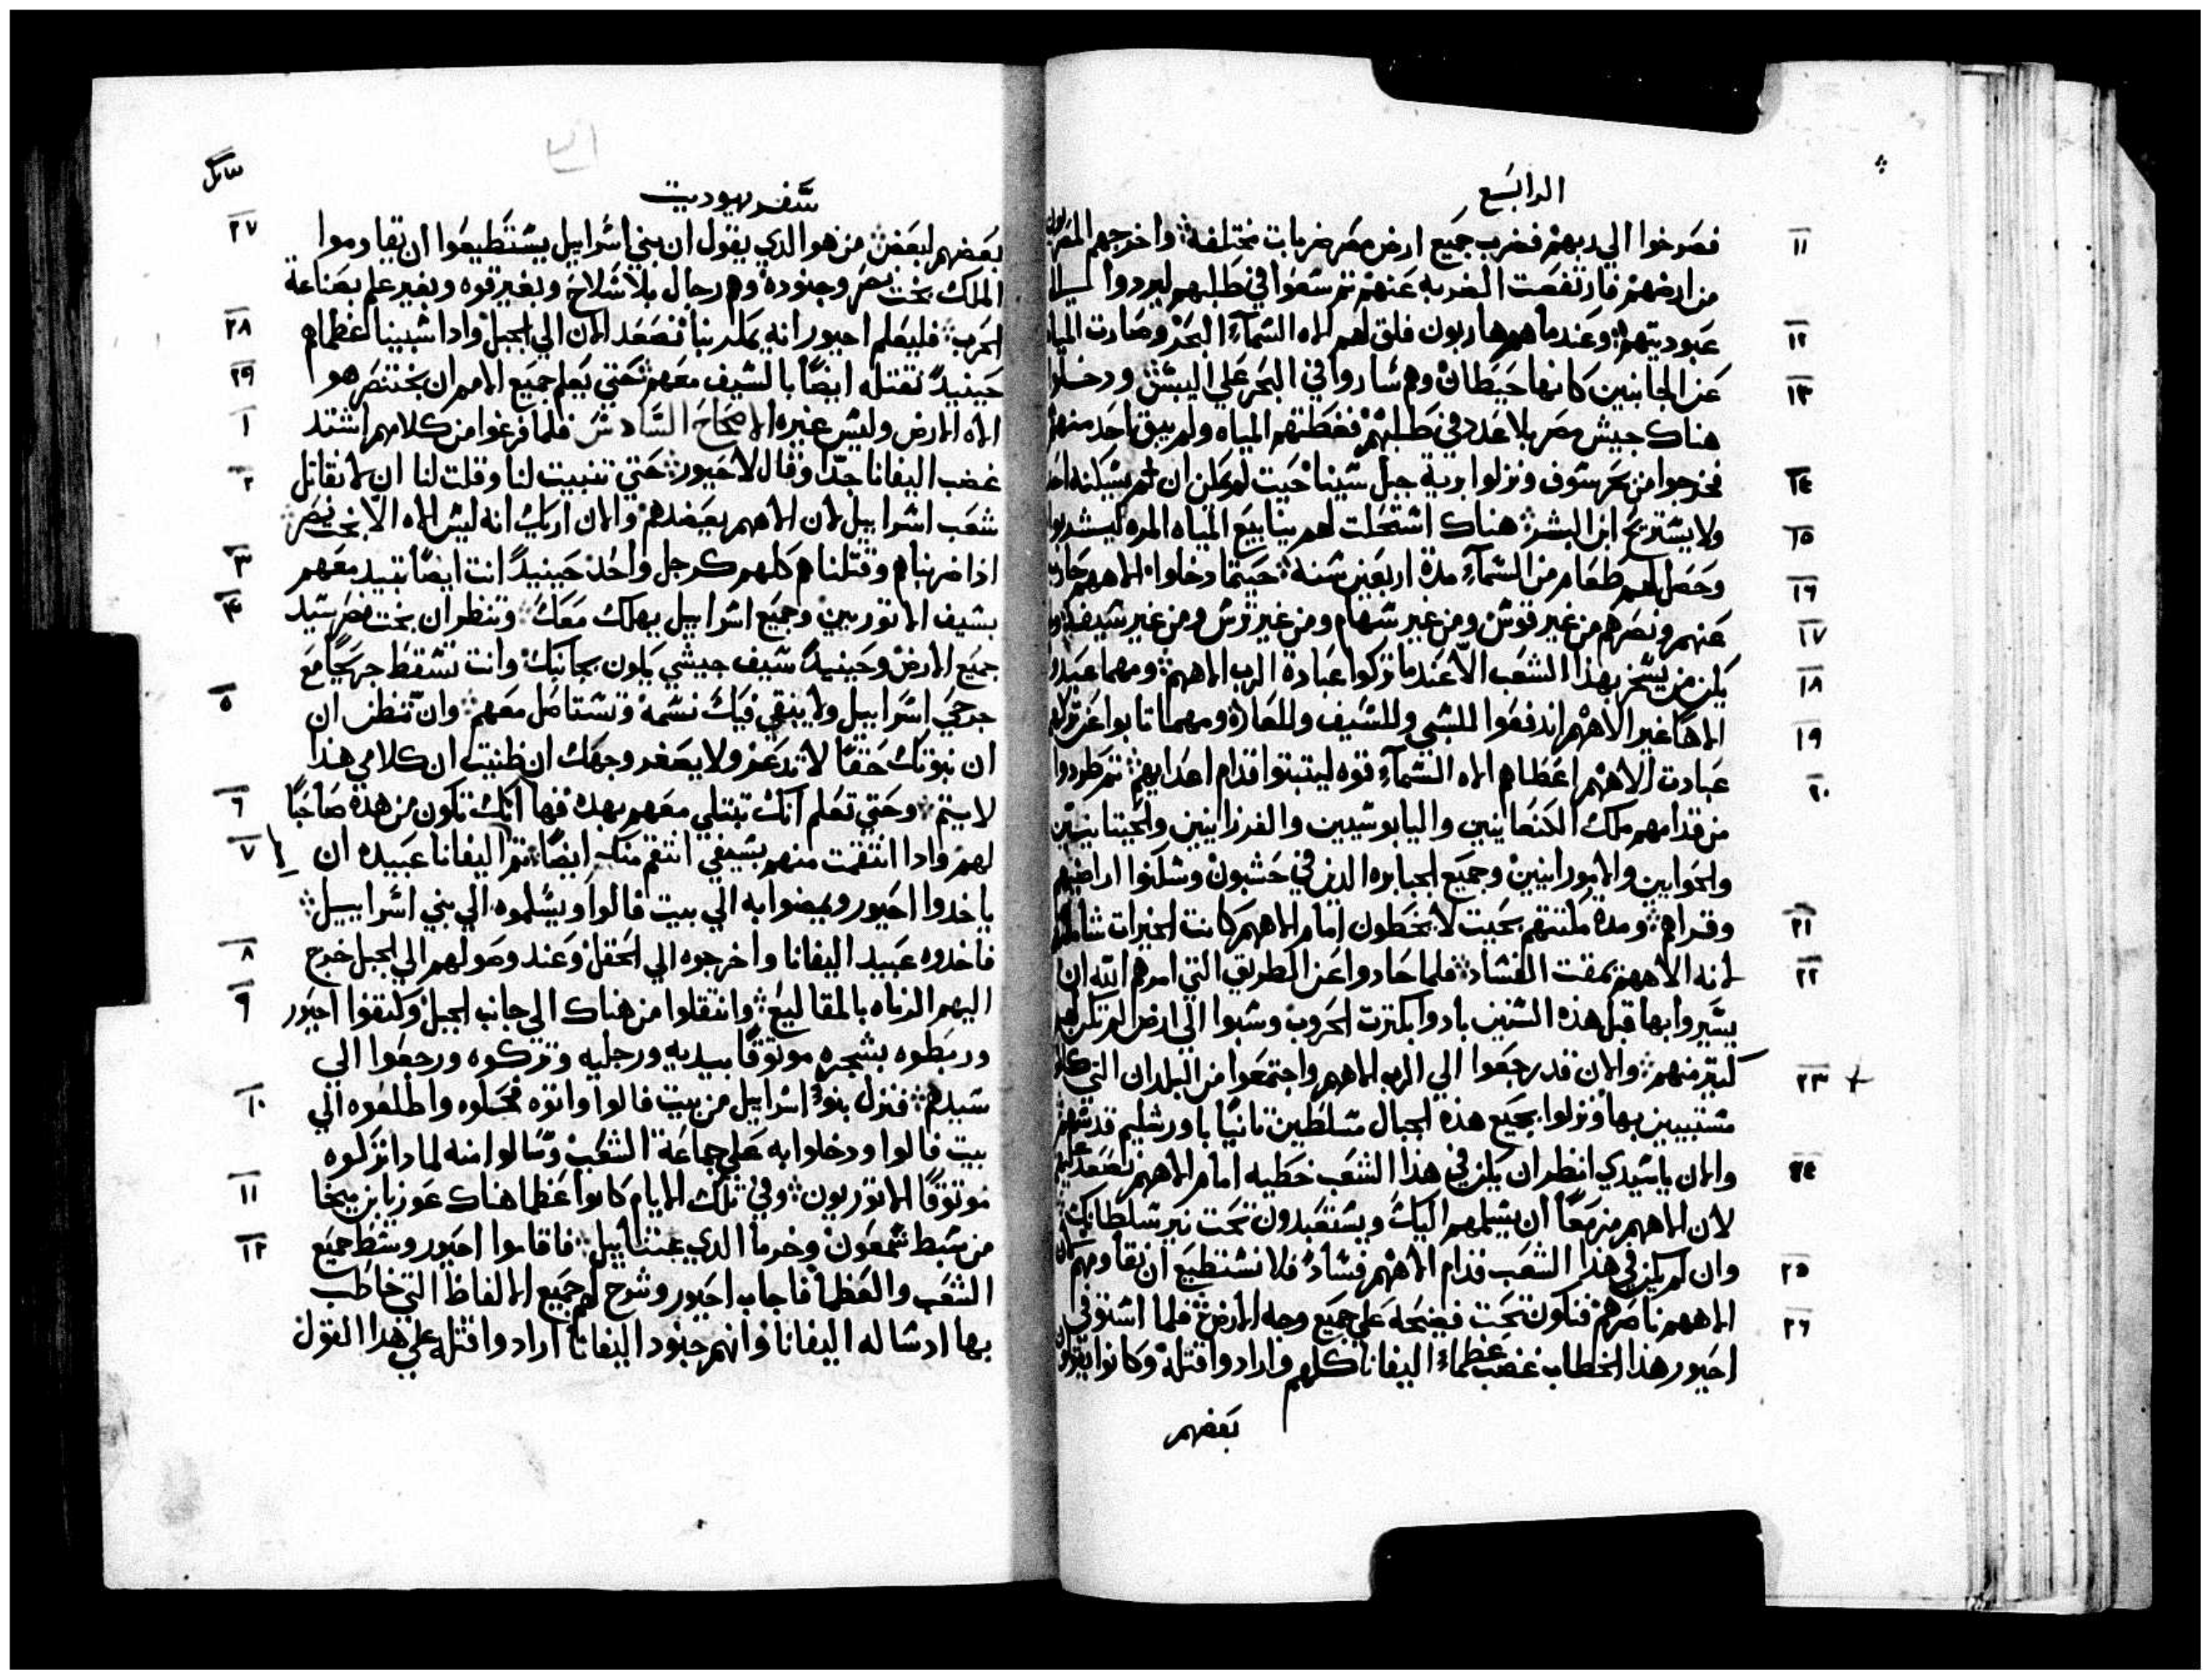 الرابع
١١ فصرخوا الي ربهم فضرب جميع ارض مصر ضربات مختلفة واخرجهم المصريون
من ارضهم فارتفعت الضربه عنهم ثم سعوا في طلبهم ليردوا الي
١٢ عبوديتهم وعندما هم هاربون فلق لهم اله السمآء البحر وصارت المياه
١٣ عن الجانبين كانها حيطان وهم ساروا في البحر علي اليبس ودخلوا
هناك جيش مصر بلا عدد في طلبهم فغطتهم المياه ولم يبق احد منهم
١٤ فخرجوا من بحر سوف ونزلوا برية جبل سينا حيت لم يمكن ان يسكنه احد
١٥ ولا يستريح ابن البشر هناك استحلت لهم ينابيع المياه المره ليشربوا
١٦ وحصل لهم طعام من السمآء مدة اربعين سنه حيتما دخلوا الاههم حارب
١٧ عنهم ونصرهم من غير قوس ومن غير سهام ومن غير ترس ومن غير سيف ولم
١٨ يكن من يسخر بهذا الشعب الا عندما تركوا عبادة الرب الاههم ومهما عبدوا
١٩ الاها غير الاههم اندفعوا للسبي وللسيف وللعار ومهما تابوا عن تركهم
٢٠ عبادت الاههم اعطاهم اله السمآء قوه ليتبتوا قدام اعدايهم ثم طردوا
من قدامهم ملك الكنعانيين واليابوسيين والفرزانيين والحيتانيين
والحوايين والامورانيين وجميع الجبابره الذين في حشبون وسكنوا اراضيهم
٢١ وقراهم ومدة مكتهم بحيت لا يخطون امام الاههم كانت الخيرات شاملهم
٢٢ لانه الاههم يمقت الفساد فلما حادوا عن الطريق التي امرهم الله ان
يسيروا بها قبل هذه السنين بادوا بكترت الحروب وسبوا الي ارض لم تكن لهم
٢٣ كتير منهم والان قد رجعوا الي الرب الاههم واجتمعوا من البلدان التي كانوا
مشتتين بها ونزلوا بجميع هذه الجبال متسلطين تانيا باورشليم قدسهم
٢٤ والان يا سيدي انظر ان يكن في هذا الشعب خطيه امام الاههم لنصعد عليهم
لان الاههم مزمعا ان يسلمهم اليك ويستعبدون تحت نير سلطانك
٢٥ وان لم يكن في هذا الشعب قدام الاههم فساد فلا نستطيع ان نقاومهم لان
٢٦ الاههم ناصرهم فنكون تحت فضيحة علي جميع وجه الارض فلما استوفي
احيور هذا الخطاب غضب عظماء اليفانا كلهم وارادوا قتله وكانوا يقولون
بعضهم
سفر يهوديت
٢٧ بعضهم لبعض من هو الدي يقول ان بني اسراييل يستطيعوا ان يقاوموا
الملك بخت نصر وجنوده وهم رجال بلا سلاح وبغير قوه وبغير علم بصناعة
٢٨ الحرب فليعلم احيور انه يمكر بنا فنصعد الان الي الجبل وادا سبينا عظماهم
٢٩ حينيد نقتله ايضا بالسيف معهم حتي يعلم جميع الامم ان بختنصر هو
١ اله الارض وليس غيره الاصحاح السادس فلما فرغوا من كلامهم اشتد
٢ غضب اليفانا جدا وقال لاحيور حتي تنبيت لنا وقلت لنا ان لا نقاتل
شعب اسراييل لان الاههم يعضدهم والان اريك انه ليس اله الا بخت نصر
٣ اذا ضربناهم وقتلناهم كلهم كرجل واحد حينيد انت ايضا تبيد معهم
٤ بسيف الاتوريين وجميع اسراييل يهلك معك وتنظر ان بخت نصر سيد
جميع الارض وحينيد سيف جيشي يكون بجانبك وانت تسقط جريحا مع
٥ جرحي اسراييل ولا يبقي فيك نسمة وتستاصل معهم وان تنظر ان
ان نبوتك حقا لا تدعر ولا يصغر وجهك ان ظنيت ان كلامي هذا
٦ لا يتم وحتي تعلم انك تبتلي معهم بهده فها انك تكون من هده صاحبا
٧ لهم وادا انتقمت منهم بسيفي انتقم منك ايضا ثم اليفانا عبيده ان
ياخدوا احيور ويمضوا به الي بيت فالوا ويسلموه الي بني اسراييل
٨ فاخدوه عبيد اليفانا واخرجوه الي الحقل وعند وصولهم الي الجبل خرج
٩ اليهم الرماه بالمقاليع وانتقلوا من هناك الي جانب الجبل وكتفوا احيور
وربطوه بشجره موتوقا بيديه ورجليه وتركوه ورجعوا الي
١٠ سيدهم فنزل بنو اسراييل من بيت فالوا واتوه فحملوه واطلعوه الي
بيت فالوا ودخلوا به علي جماعة الشعب وسالوا منه لمادا تركوه
١١ موتوقا الاتوريون وفي تلك الايام كانوا عظما هناك عوزيا بن ميخا
١٢ من سبط شمعون وخرما الدي عتناييل فاقاموا احيور وسط جميع
الشعب والعظما فاجاب احيور وشرح لهم جميع الالفاظ التي خاطب
بها ادساله اليفانا وانهم جنود اليفانا ارادوا قتله علي هدا القول